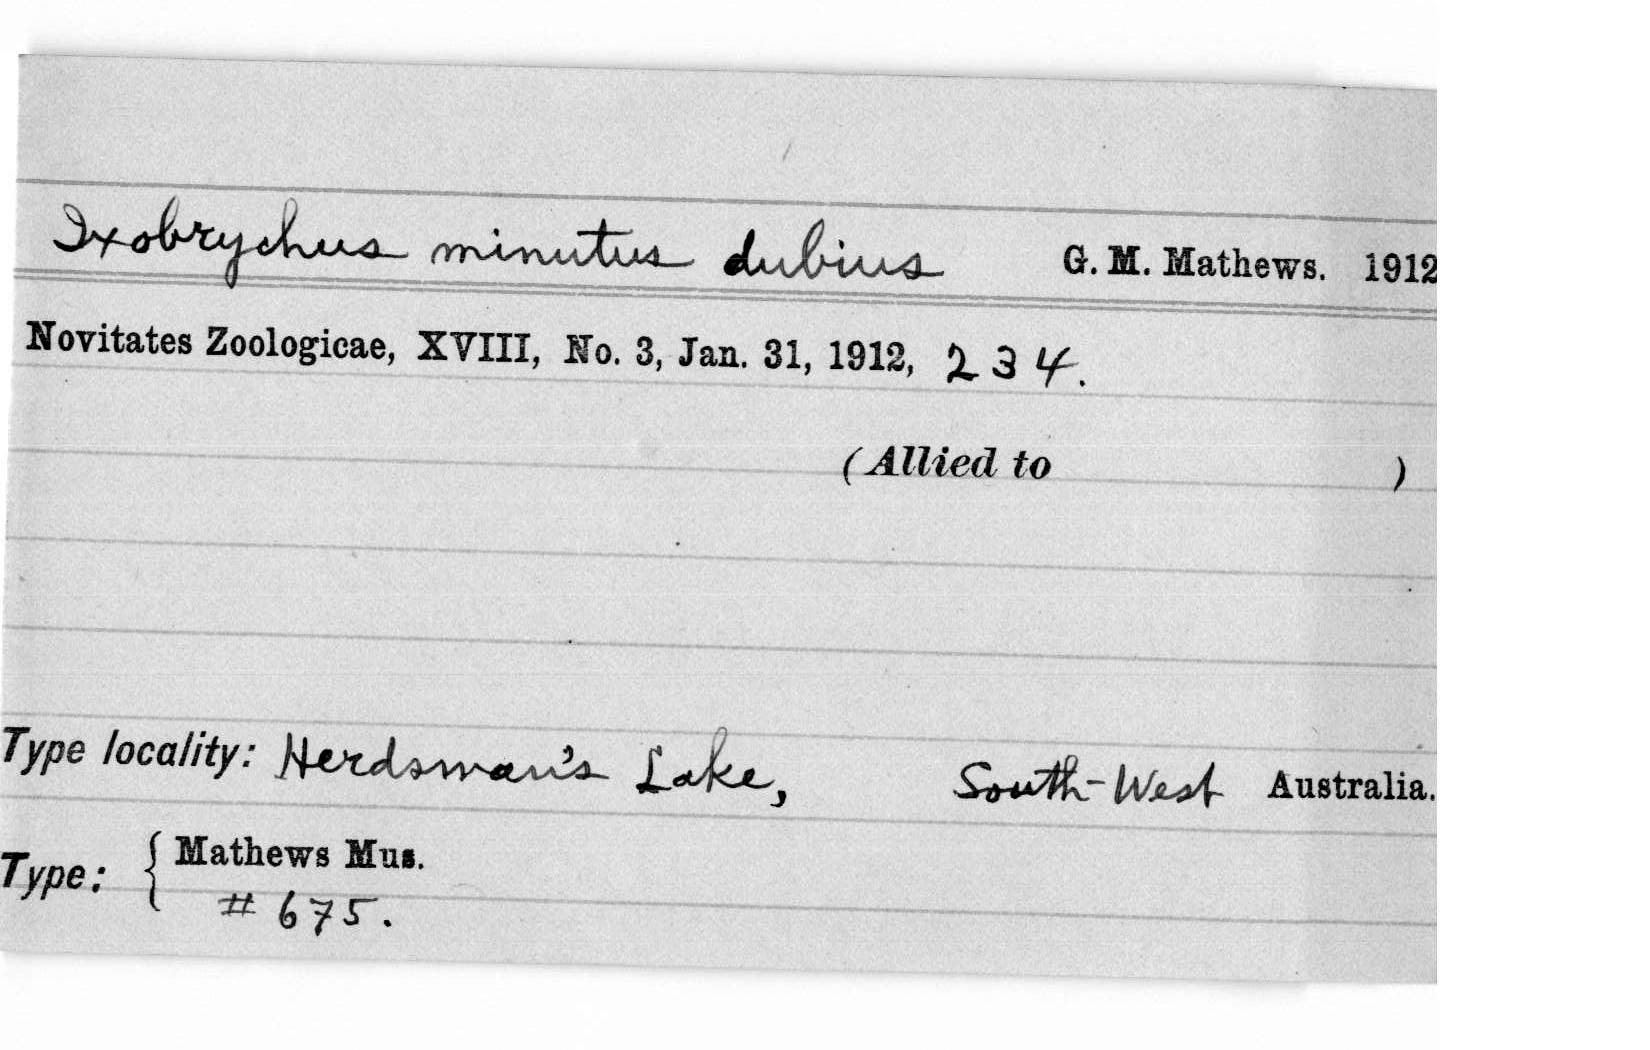 Ixobrychus minutus dubius G. M. Mathews. 1912
Novitates Zoologicae, XVIII, No. 3, Jan. 31, 1912, 234.
(Allied to )
Type locality: Herdsman's Lake, South-West Australia.
Type: { Mathews Mus.
# 675.